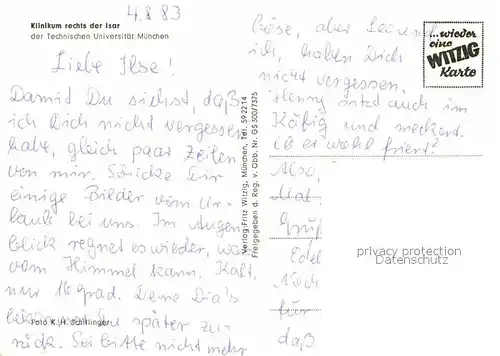 4.8.83
Klinikum rechts der Isar
der Technischen Universität München
Liebe Ilse!
Damit Du siehst, daß
ich Dich nicht vergessen
habe, gleich paar Zeilen
von mir. Schicke Dir
einige Bilder vom Ur-
laub bei uns. Im Augen-
blick regnet es wieder, was
vom Himmel kann. Kalt,
nur 16 Grad. Deine Dia's
bekommst Du später zu-
rück. Sei bitte nicht mehr
Foto K. H. Schillinger
Verlag Fritz Witzig, München, Tel. 59 22 14
Freigegeben d. Reg. v. Obb. Nr. GS 300/7375
böse, aber
ich, haben Dich
nicht vergessen.
Henny sitzt auch im
Käfig und meckert.
Ob er wohl friert?
...wieder
eine
WITZIG
Karte
privacy protection
Datenschutz